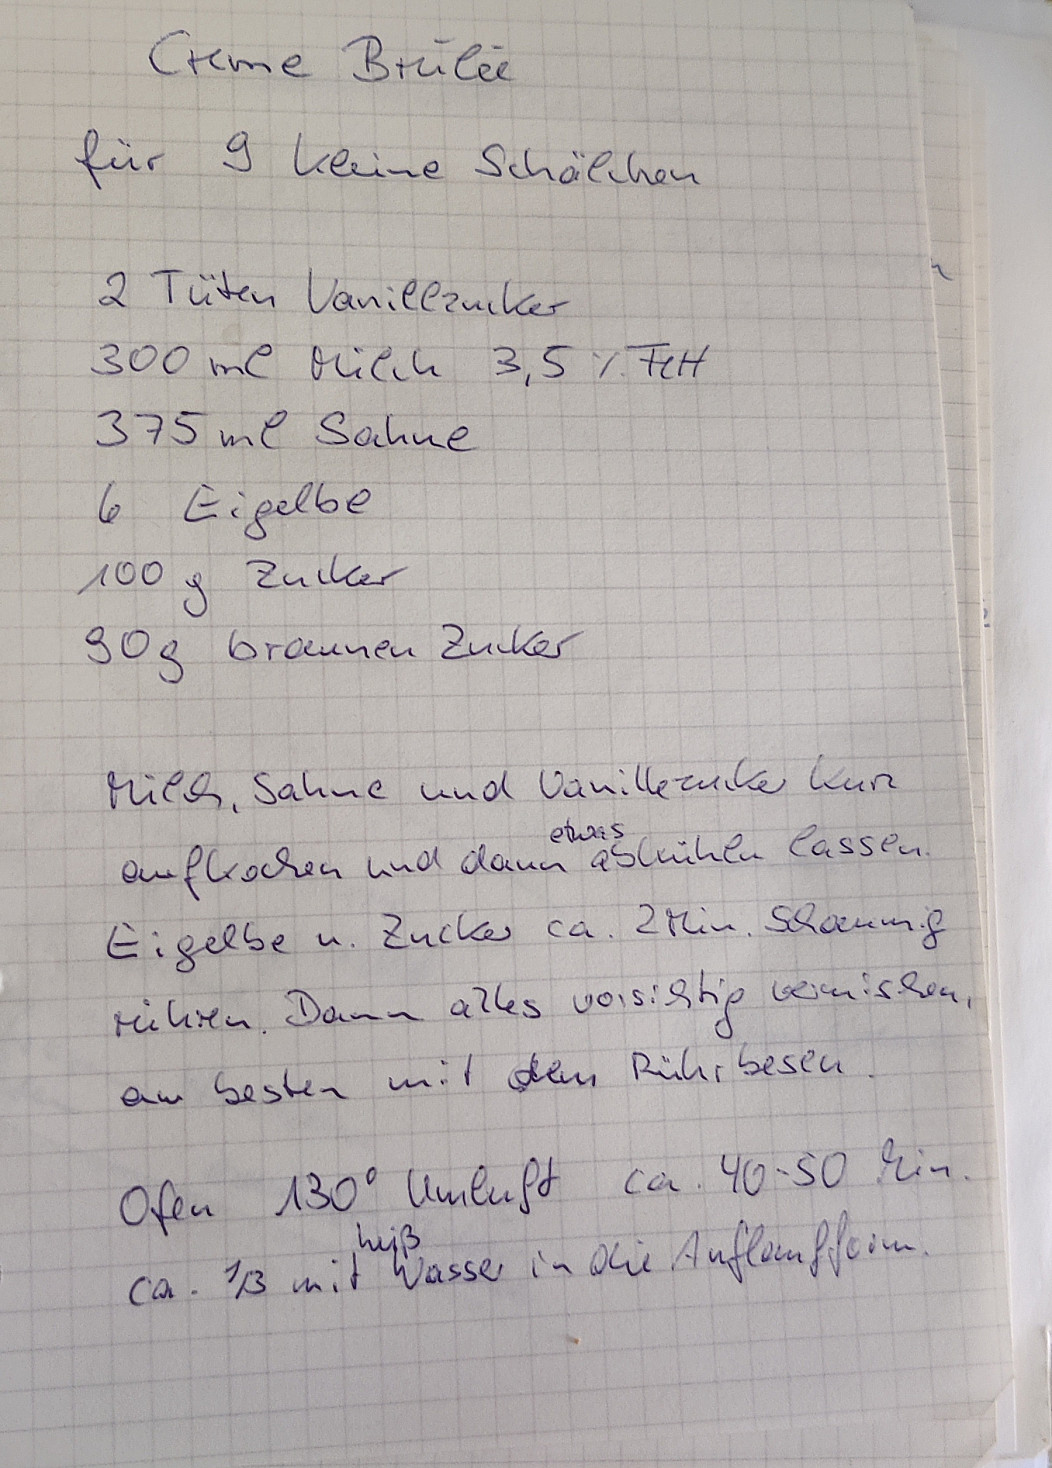 Creme Brülèe
für 9 kleine Schälchen
2 Tüten Vanillzucker
300 ml Milch 3,5 % Fett
375 ml Sahne
6 Eigelbe
100 g Zucker
90g braunen Zucker
Milch, Sahne und Vanillezucker kurz
aufkochen und dann etwas abkühlen lassen.
Eigelbe u. Zucker ca. 2 Min. schaumig
rühren. Dann alles vorsichtig vermischen,
am besten mit dem Rührbesen.
Ofen 130° Umluft ca. 40-50 Min.
ca. 1/3 mit heiß Wasser in die Auflaufform.